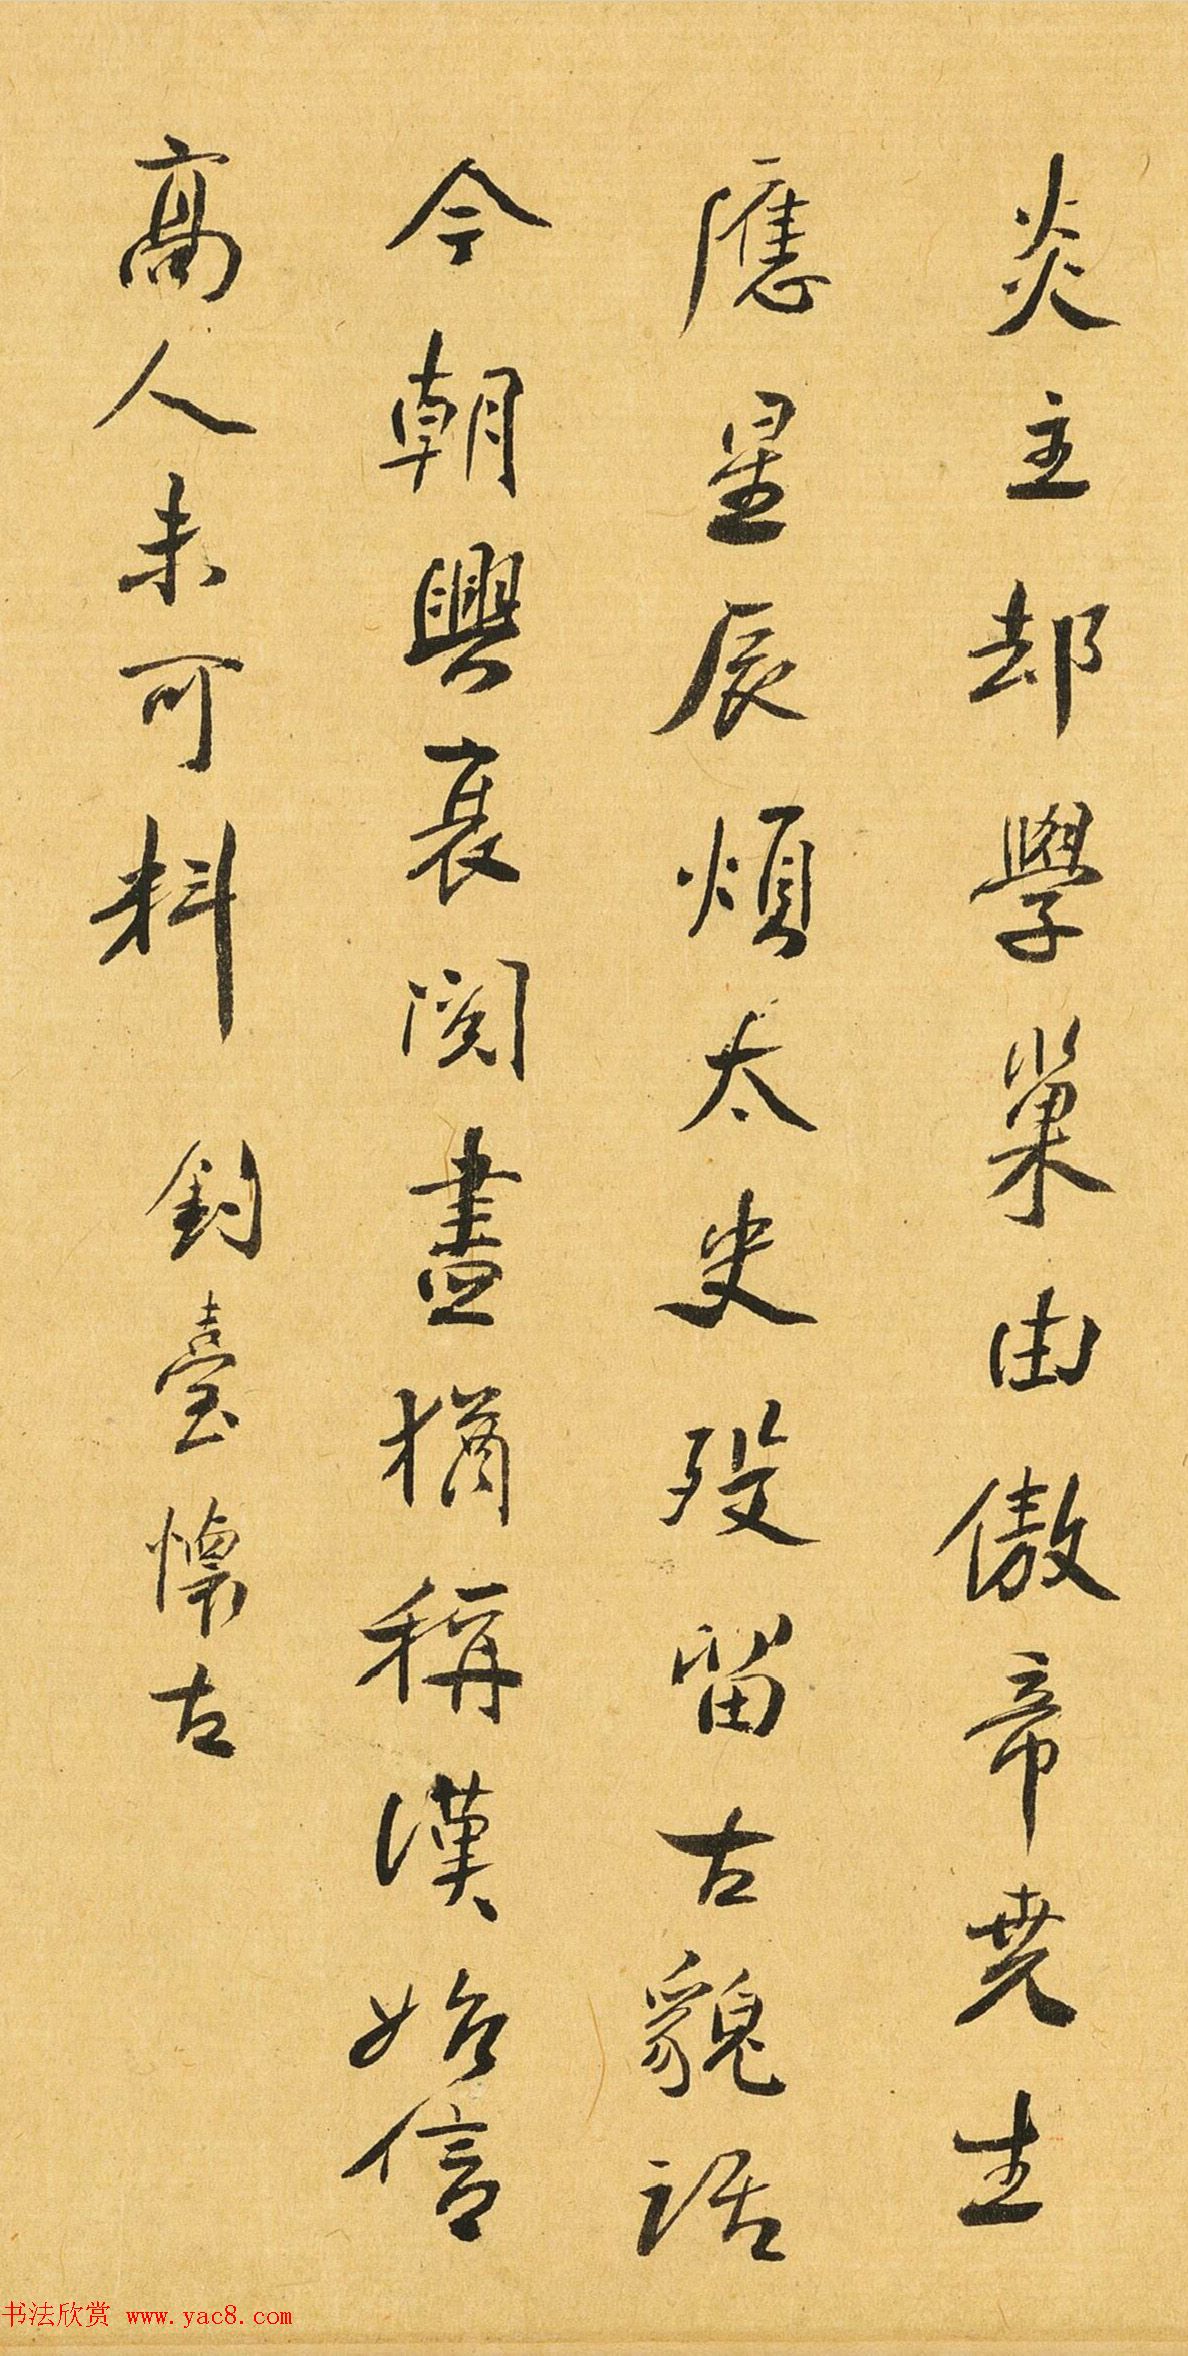 炎主却學巢由傲帝堯生
應星辰煩太史歿留古貌話
今朝興衰閱盡猶稱漢始信
高人未可料 釣臺懷古
书法欣赏 www.yac8.com